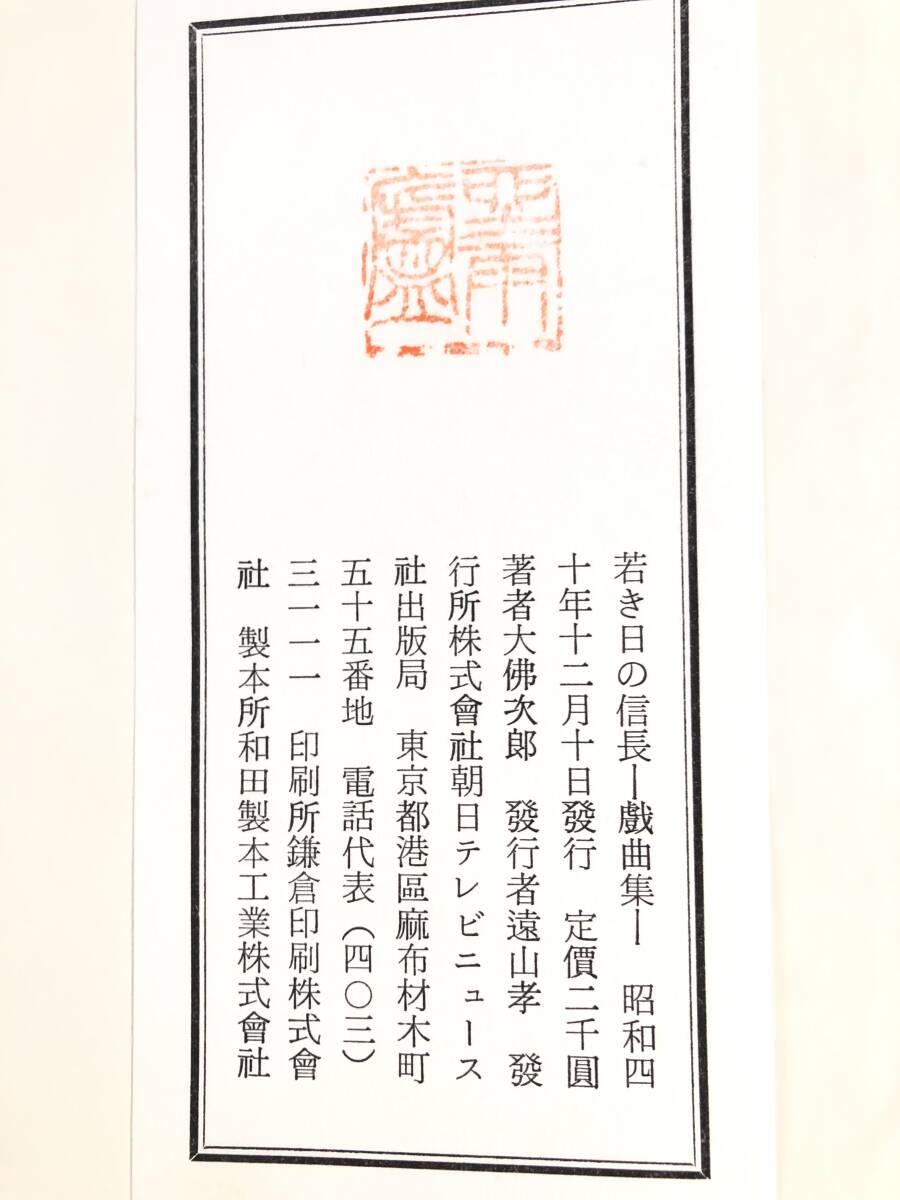 若き日の信長ー戯曲集ー　昭和四
十年十二月十日發行　定價二千圓
著者大佛次郎　發行者遠山孝　發
行所株式會社朝日テレビニュース
社出版局　東京都港區麻布材木町
五十五番地　電話代表（四〇三）
三一一一　印刷所鎌倉印刷株式會
社　製本所和田製本工業株式會社